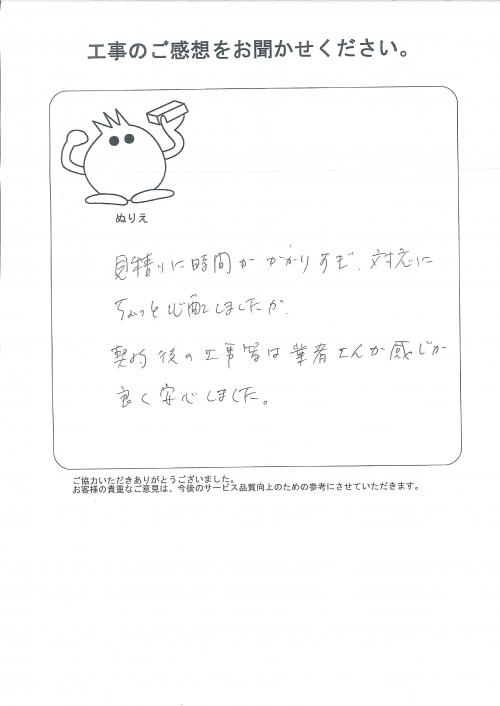 工事のご感想をお聞かせください。
ぬりえ
見積りに時間がかかりすぎ、対応に
ちょっと心配しましたが、
契約後の工事等は業者さんが感じが
良く安心しました。
ご協力いただきありがとうございました。
お客様の貴重なご意見は、今後のサービス品質向上のための参考にさせていただきます。